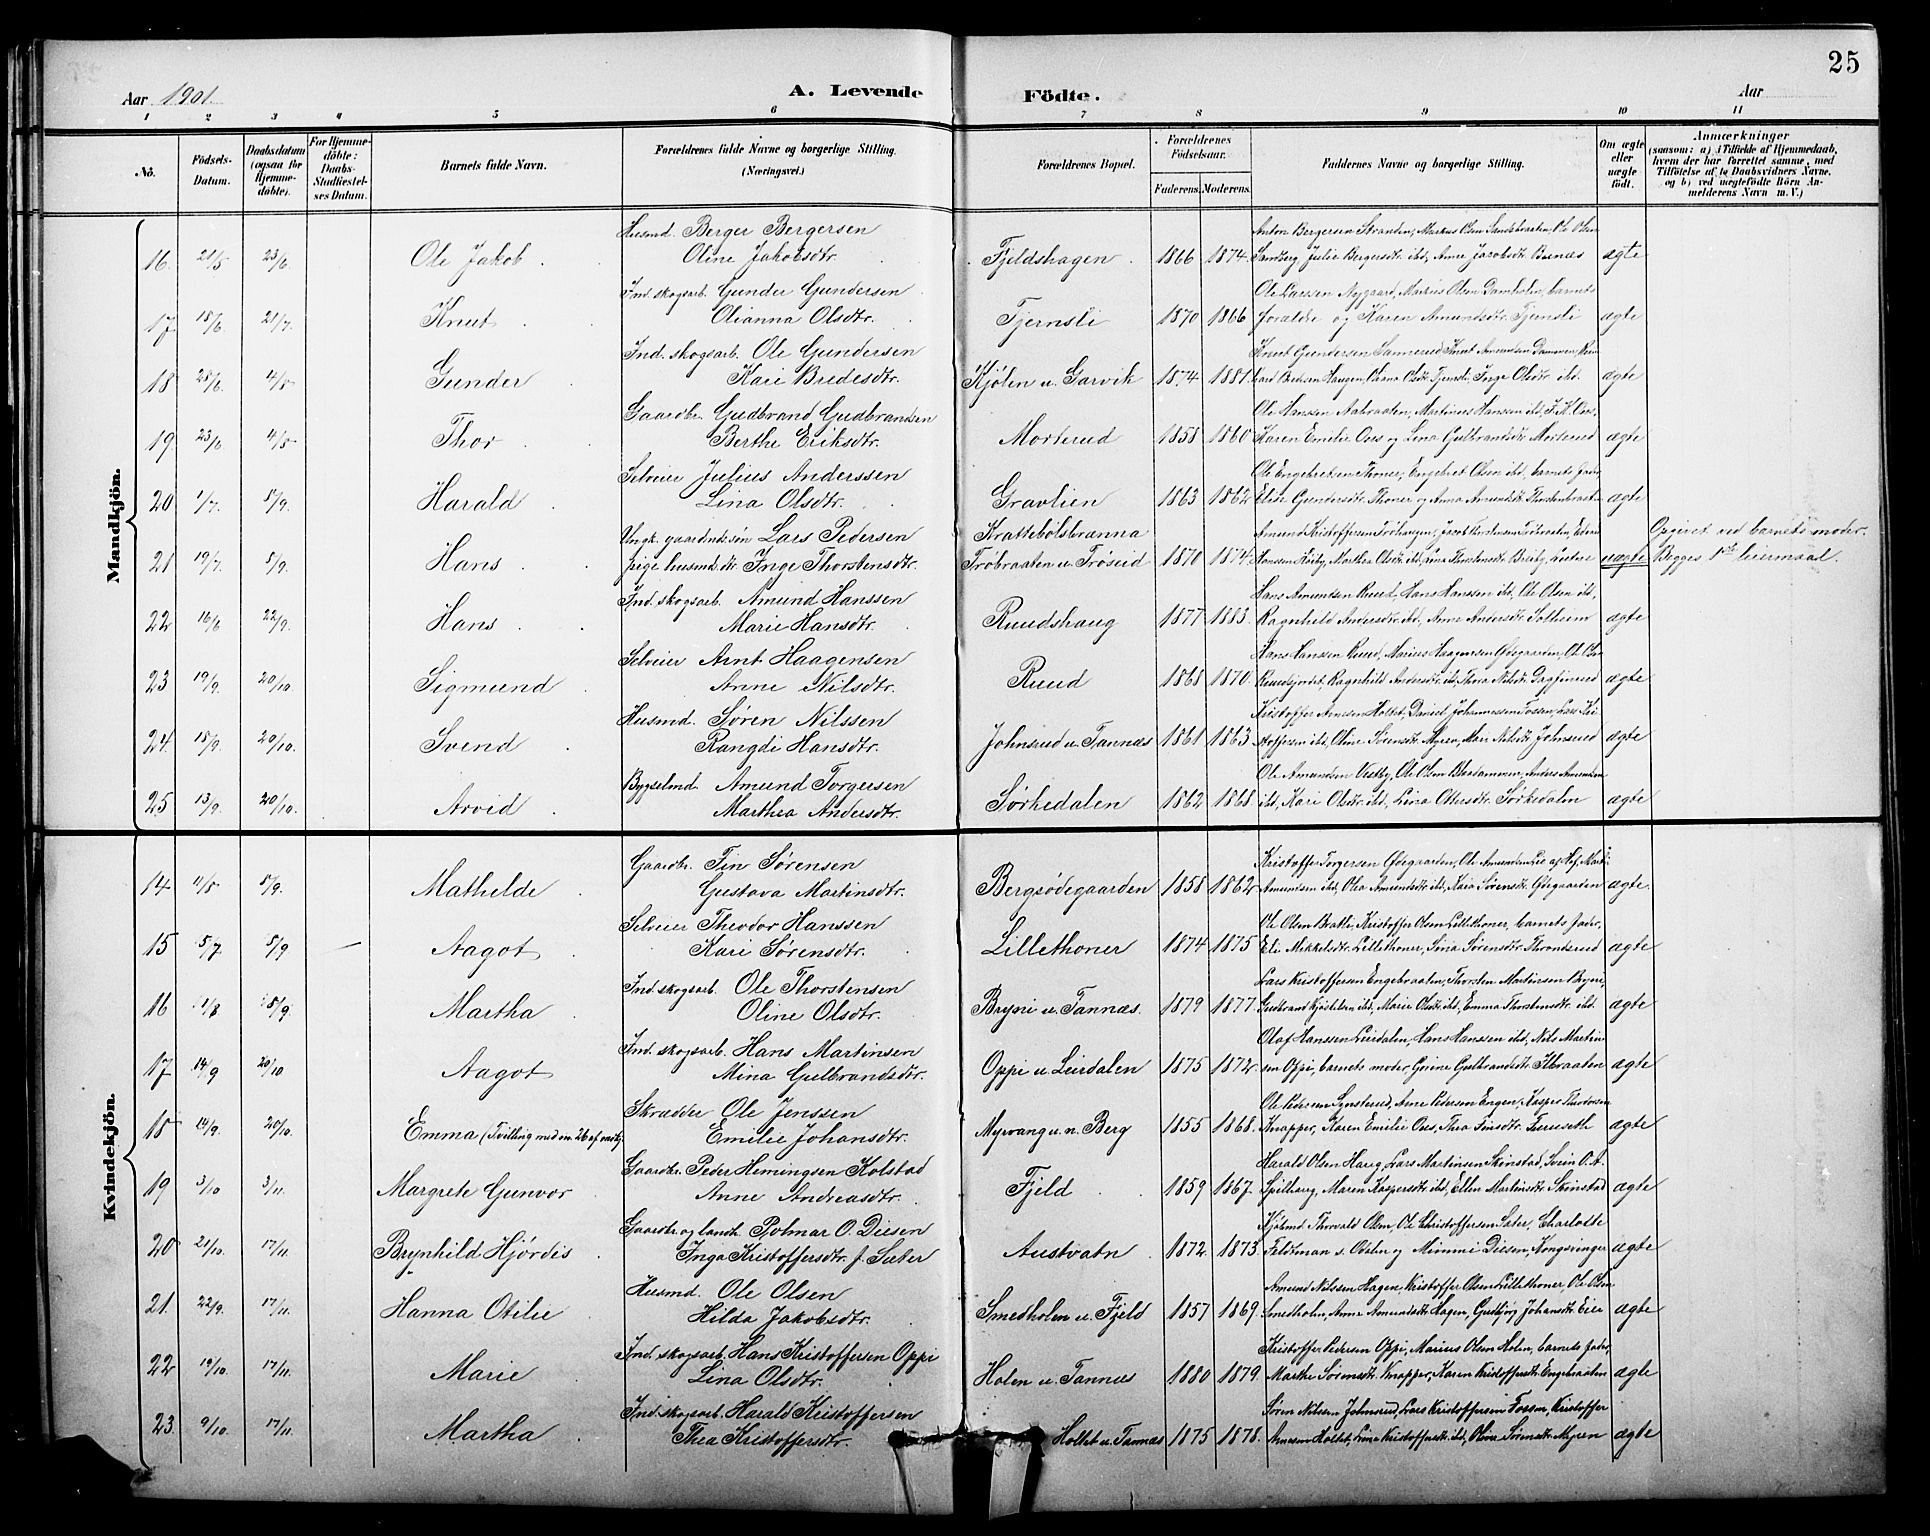 25
Aar 1901. A. Levende Födte. Aar
1 2 3 4 5 6 7 8 9 10 11
No. Födsels-Datum. Daabsdatum (ogsaa för Hjemme-döbte). For Hjemme-döbte: Daabs-Stadfæstel-ses Datum. Barnets fulde Navn. Forældrenes fulde Navne og borgerlige Stilling. (Næringsvei.) Forældrenes Bopæl. Forældrenes Födselsaar. Faderens. Moderens. Faddernes Navne og borgerlige Stilling. Om ægte eller uægte födt. Anmærkninger (saasom: a) i Tilfælde af Hjemmedaab, hvem der har forrettet samme, med Tilföielse af to Daabsvidners Navne, og b) ved uægtefödte Börn Anmelderens Navn m. V.)
Mandkjön.
Husmd. Berger Bergersen Anton Bergersen Stranden, Markus Olsen Sandebraaten, Ole Olsen
16. 21/5 23/6 Ole Jakob. Oline Jakobsdtr. Fjeldshagen. 1866 1874. Sandberg, Julie Bergersdt. ibd, Anne Jacobsdt. Busnæs ægte
Ind. skogsarb. Gunder Gundersen Ole Larssen Nygaard, Markus Olsen Damholen, barnets
17 18/6. 21/7. Knut Olianna Olsdtr. Tjernsli 1870 1866 forældre og Karen Amundsdtr. Tjernsli ægte
Ind. skogsarb. Ole Gundersen Knut Gundersen Sannerud, Knut Amundsen Dammen,
18 28/6. 4/8 Gunder Kari Bredesdtr. Kjölen u. Garvik 1874 1881. Bredesen Haugen, Olava Olsdtr. Tjernsli, Inge Olsdtr. ibd. ægte
Gaardbr. Gudbrand Gudbrandsen Ole Hanssen Aabraaten, Martinus Hanssen ibd, J. K. Oes,
19. 23/6. 4/8 Thor Berthe Eriksdtr. Morterud 1858 1860 Karen Emilie Oes og Lina Gulbrandsdt. Morterud ægte
Selveier Julius Anderssen Ole Engebretsen Thoner, Engebret Olsen ibd, barnets fader
20 1/7. 8/9. Harald Lina Olsdtr. Gravlien 1863 1862 Elise Gundersdtr. Thoner og Anna Amundsdt. Thorstenbraaten ægte
Ungk. gaardmdsøn Lars Pedersen Krattebölsbrænna Amund Kristoffersen Tröhaugen, Opgivet ved barnets moder.
21 19/7. 8/9. Hans pige husmd.dtr. Inge Thorstensdtr. Tröbraaten u. Tröseid 1870 1874. Hanssen Kirby, Marthea Olsdt. ibd, Lina Thorstensdt. uægte Begges 1ste leiermaal.
Ind. skogsarb. Amund Hanssen Hans Amundsen Ruud, Hans Hanssen ibd, Ole Olsen ibd,
22 16/6 22/9. Hans Marie Hansdtr. Ruudshaug 1877 1883. Ragnhild Andersdtr. ibd, Anne Andersdtr. Solheim ægte
Selveier Arnt Haagensen Hans Hanssen Ruud, Marius Haagensen Ødegaarden, Ole Olsen
23 19/9. 20/10. Sigmund Anne Nilsdtr. Ruud 1868 1870. Ruudsjordet, Ragnhild Andersdtr. ibd, Thora Nilsdt. Dagfinrud ægte
Husmd. Søren Nilssen Kristoffer Arnesen Holtet, Daniel Johannessen Fossen, Lars Kri
24. 18/9. 20/10. Svend Rangdi Hansdtr. Johnsrud u. Tannæs 1861 1863 stoffersen ibd, Oline Sørensdtr. Myren, Mari Nilsdt. Johnsrud ægte
Bygselmd. Amund Torgersen Ole Amundsen Vestby, Ole Olsen Bladammen, Anders Amundsen
25. 13/9. 20/10. Arvid Marthea Andersdtr. Sørkedalen 1862 1868. ibd, Kari Olsdtr. ibd, Lina Ottersdtr. Sørkedalen ægte
Kvindekjön.
Gaardbr. Fin Sørensen Kristoffer Torgersen Ødegaarden, Ole Amundsen Lie af Hof, Mart.
14 11/8 8/9. Mathelde Gustava Martinsdtr. Bergsödegaarden 1858 1862 Amundsen ibd, Olea Amundsdtr ibd, Kaia Sørensdtr. Ødegaarden ægte.
Selveier Theodor Hanssen Ole Olsen Bratli, Kristoffer Olsen Lillethoner, barnets fader,
15 5/7 8/9 Aagot Kari Sørensdtr. Lillethoner 1874 1875 Eli Mikkelsdtr. Lillethoner, Sina Sørensdtr. Throntsrud ægte
Ind. skogsarb. Ole Thorstensen Lars Kristoffersen Engebraaten, Thorsten Martinsen Bryni,
16 1/8 8/9. Martha Oline Olsdtr. Bryni u. Tannæs. 1879 1877. Gudbrand Kjøslibn ibd, Marie Olsdt. ibd, Emma Thorstensdtr ibd. ægte
Ind. skogsarb. Hans Martinsen Olaf Hanssen Leirdalen, Hans Hanssen ibd, Nils Martin
17 14/9 20/10 Aagot Mina Gulbrandsdtr. Oppi u Leirdalen 1875 1872. sen Oppi, barnets moder, Gerine Gulbrandsdt. Ilbraaten ægte
Skrædder Ole Jenssen Ole Pedersen Synsterud, Arne Pedersen Engen, Kasper Theodorsen
18 14/9. 20/10. Emma (Tvilling med no. 26 af mandkj.) Emilie Johansdtr. Myrvang u. n. Berg 1855 1868. Knapper, Karen Emilie Oes, Thea Finsdtr. Furuseth ægte
Gaardbr. Peder Hemingsen Kolstad Harald Olsen Haug, Lars Martinsen Skinstad, Svein O. A.
19 3/10 3/11. Margrete Gunvor Anne Andreasdtr. Fjeld 1859 1867. Spilhaug, Maren Kaspersdtr ibd, Ellen Martinsdtr. Skinstad ægte
Gaardbr. og landh. Hjalmar O. Diesen Kjöbmd. Thorvald Olsen, Ole Christoffersen Sæter, Charlotte
20 21/10. 17/11. Brynhild Hjördis Inga Kristoffersdtr. f. Sæter Austvatn 1872. 1873. Feldtman s. Odalen og Mimmi Diesen, Kongsvinger ægte
Husmd. Ole Olsen Amund Nilssen Hagen, Kristoffer Olsen Lillethoner, Ole Olsen
21. 22/9. 17/11. Hanna Otilie Hilda Jakobsdtr. Smedholen u. Fjeld 1857 1869. Smedholen, Anne Amundsdtr Hagen, Gudbjør Johansdtr. Eier ægte
Ind. skogsarb. Hans Kristoffersen Oppi Kristoffer Pedersen Oppi, Marius Olsen Holen, barnets fader,
22 19/10. 17/11. Marie Lina Olsdtr. Holen u. Tannæs 1880 1879. Marthe Sørensdtr. Knapper, Karen Kristoffersdtr. Engebraaten ægte
Ind. skogsarb. Harald Kristoffersen Søren Nilssen Johnsrud, Lars Kristoffersen Fossen, Kristoffer
23. 9/10. 17/11. Martha Thea Kristoffersdtr. Holtet u. Tannæs 1875 1878. Arnesen Holtet, Lina Kristoffersdtr ibd, Oline Sørensdtr. Myren ægte